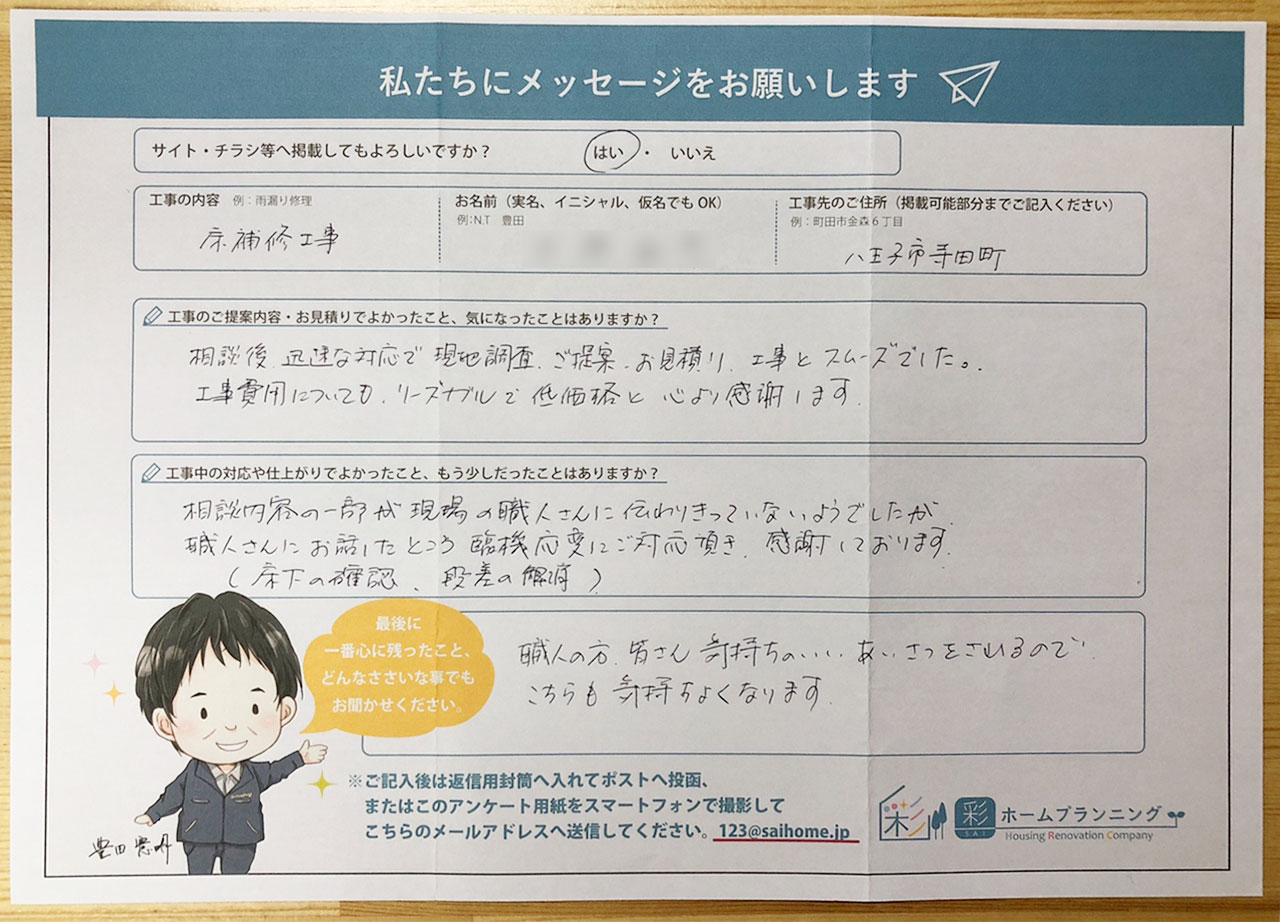 私たちにメッセージをお願いします
サイト・チラシ等へ掲載してもよろしいですか？ はい ・ いいえ
工事の内容 例：雨漏り修理
床補修工事
お名前（実名、イニシャル、仮名でもOK）
例：N.T 豊田
工事先のご住所（掲載可能部分までご記入ください）
例：町田市金森６丁目
八王子市寺田町
工事のご提案内容・お見積りでよかったこと、気になったことはありますか？
相談後、迅速な対応で現地調査、ご提案、お見積り、工事とスムーズでした。
工事費用についても、リーズナブルで低価格と心より感謝します。
工事中の対応や仕上がりでよかったこと、もう少しだったことはありますか？
相談内容の一部が現場の職人さんに伝わりきっていないようでしたが、
職人さんにお話したところ臨機応変にご対応頂き、感謝しております。
（床下の確認、段差の解消）
最後に
一番心に残ったこと、
どんなささいな事でも
お聞かせください。
職人の方、皆さん気持ちのいいあいさつをされるので
こちらも気持ちよくなります。
※ご記入後は返信用封筒へ入れてポストへ投函、
またはこのアンケート用紙をスマートフォンで撮影して
こちらのメールアドレスへ送信してください。123@saihome.jp
豊田
彩 SAI ホームプランニング
Housing Renovation Company